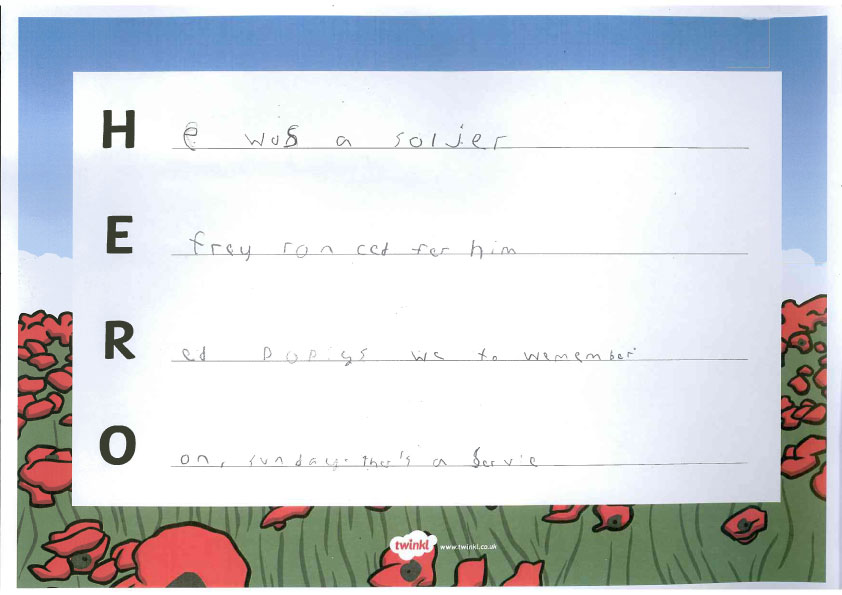 H e was a soljer
E frey ron ced for him
R ed popiys we to wemember
O on, sunday. ther's a servie
twinkl www.twinkl.co.uk